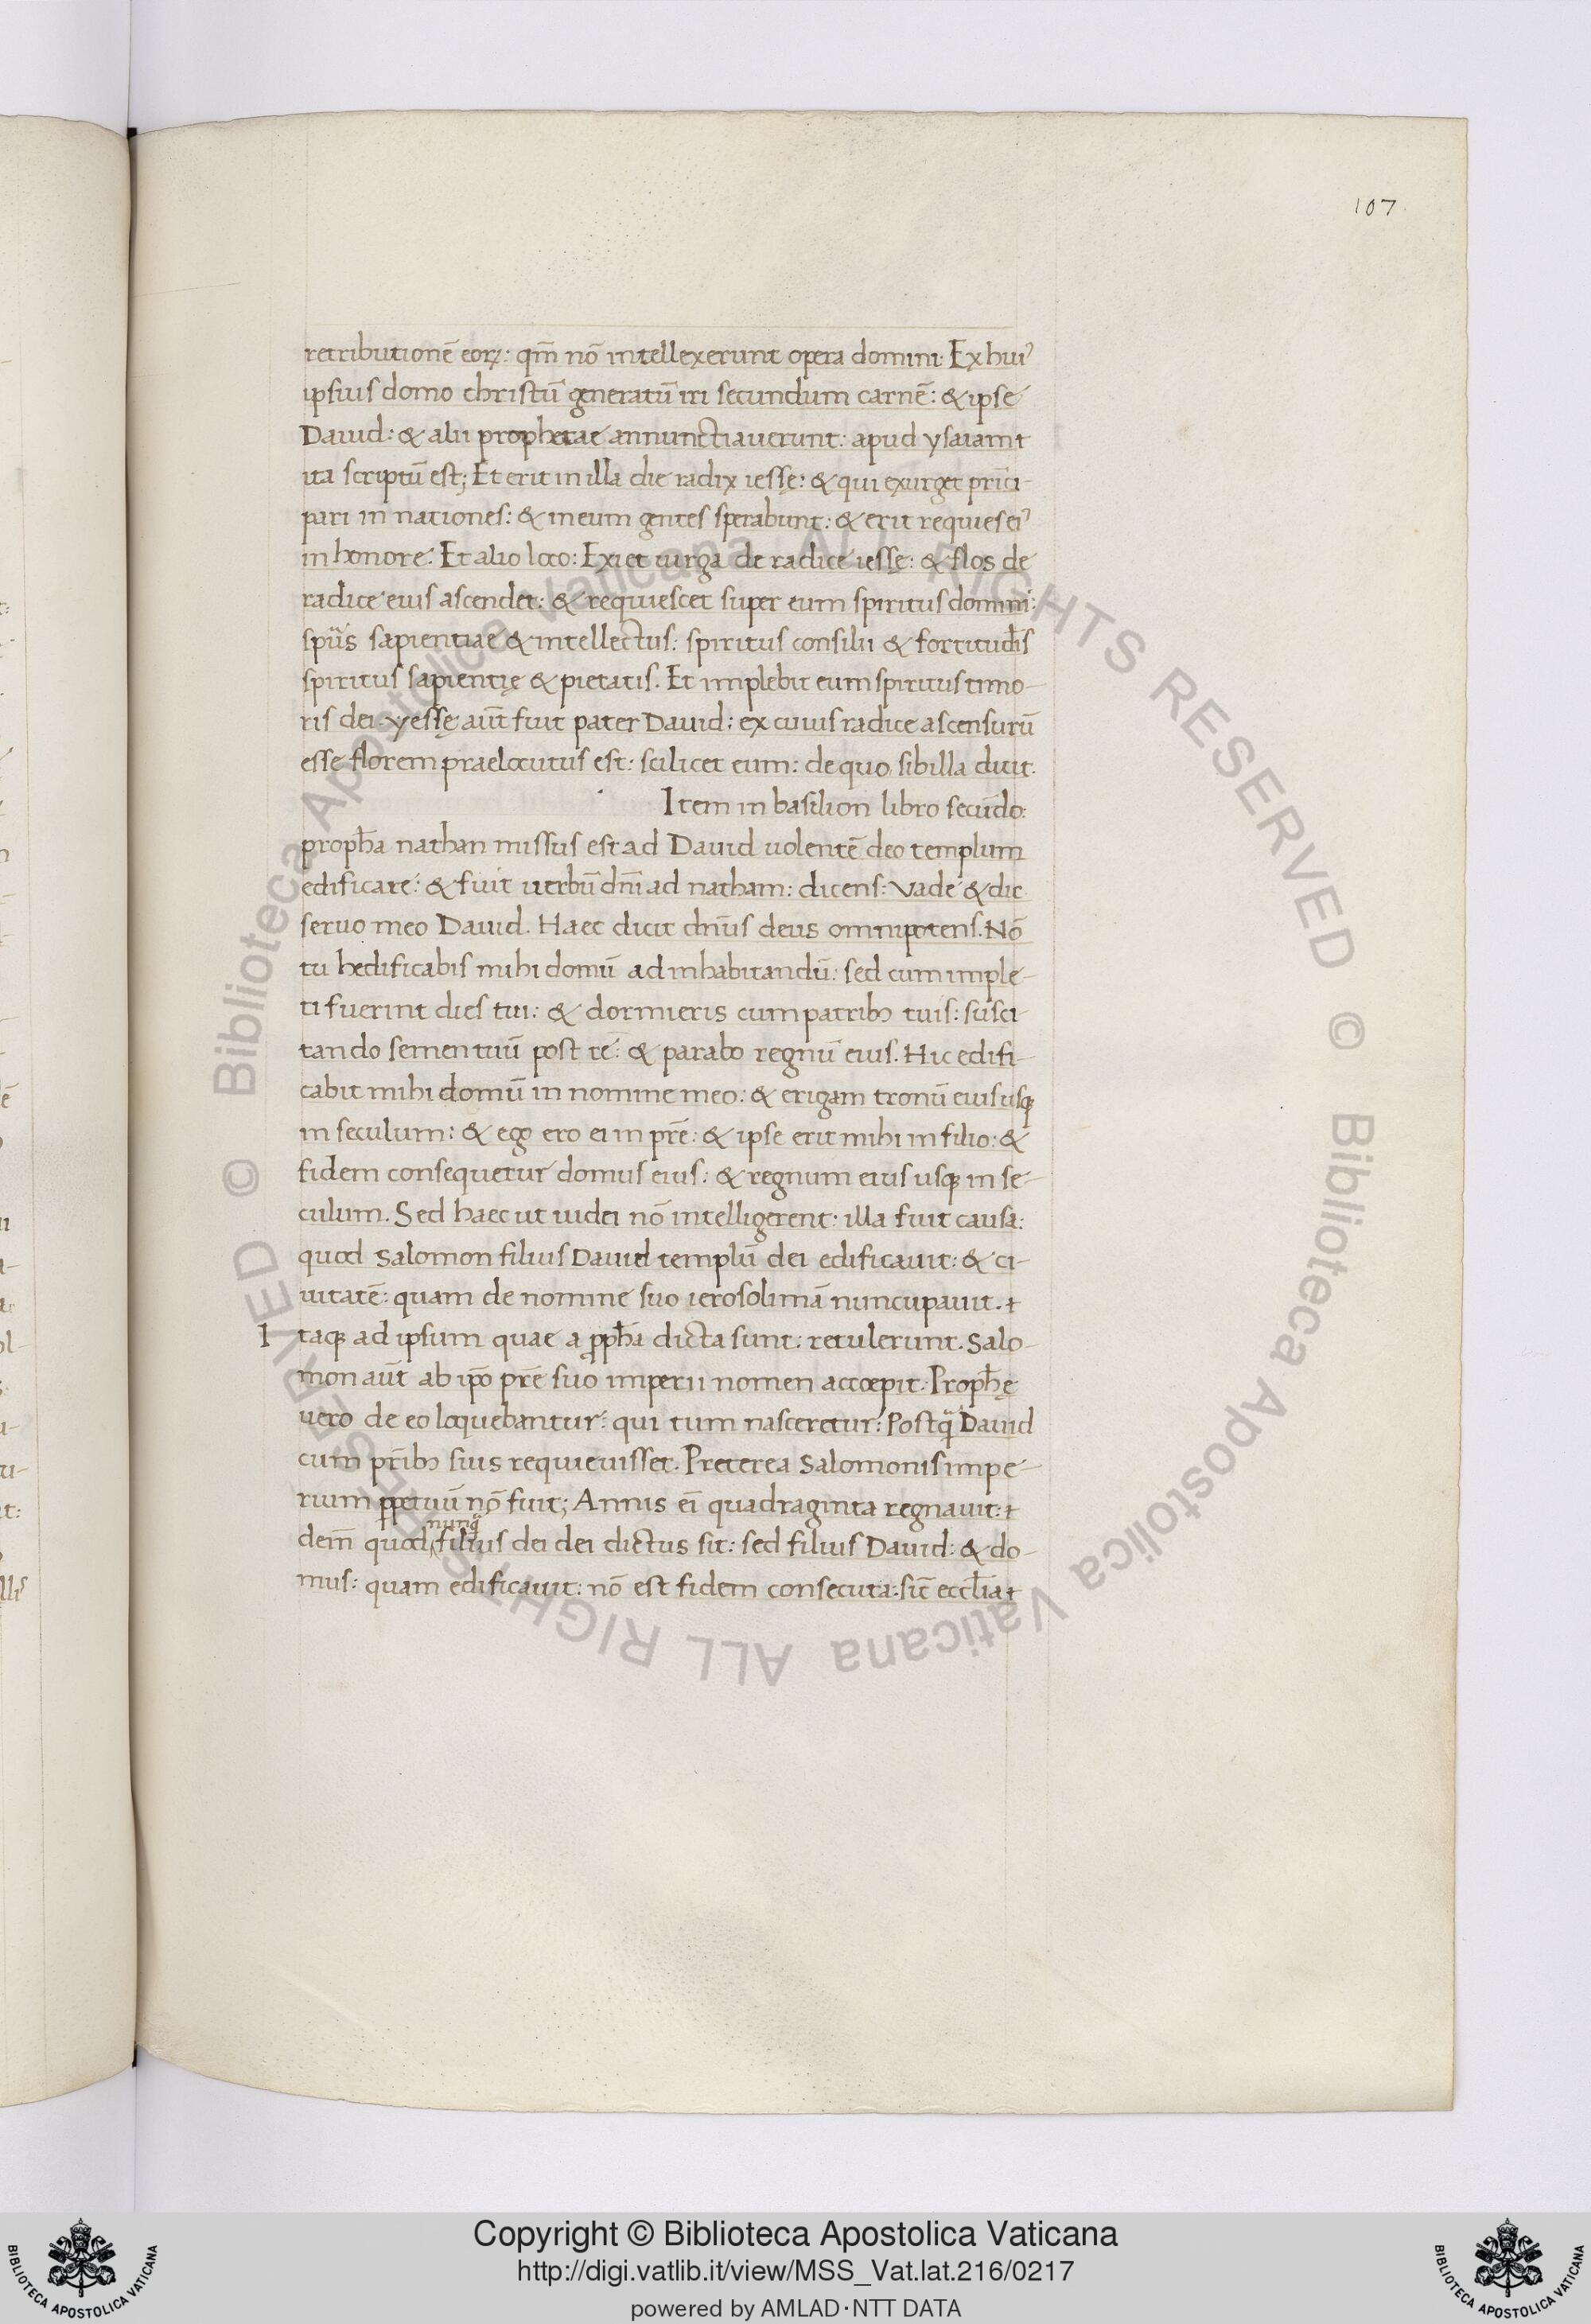 107
retributionē eoꝝ: qm̄ nō intellexerunt opera domini. Ex huiꝰ
ipsius domo christū generatū iri secundum carnē: & ipse
Dauid: & alii prophetae annunctiauerunt: apud ysaiam
ita scriptū est; Et erit in illa die radix iessę: & qui exurget prīci-
pari in nationes: & in eum gentes sperabunt: & erit requies eiꝰ
in honore. Et alio loco: Exiet uirga de radice iessę: & flos de
radice eius ascendet: & requiescet super eum spiritus domini:
spūs sapientiae & intellectus: spiritus consilii & fortitudīs
spiritus sapientię & pietatis. Et implebit eum spiritus timo-
ris dei. yessę aūt fuit pater Dauid: ex cuius radice ascensurū
esse florem praelocutus est: scilicet eum: de quo sibilla dicit.
Item in basilion libro secūdo:
propħa nathan missus est ad Dauid uolentē deo templum
edificare: & fuit uerbū dn̄i ad natham: dicens: Vade & dic
seruo meo Dauid. Haec dicit dn̄s deus omnipotens. Nō
tu hedificabis mihi domū ad inhabitandū: sed cum imple-
ti fuerint dies tui: & dormieris cum patribꝫ tuis: susci
tando semen tuū post te: & parabo regnū eius. Hic edifi-
cabit mihi domū in nomine meo: & erigam tronū eius usqꝫ
in seculum: & ego ero ei in prē: & ipse erit mihi in filio: &
fidem consequetur domus eius: & regnum eius usqꝫ in se-
culum. Sed haec ut iudei nō intelligerent: illa fuit causa:
quod Salomon filius Dauid templū dei edificauit: & ci-
uitatē: quam de nomine suo ierosolimā nuncupauit.
I taqꝫ ad ipsum quae a ꝓpħa dicta sunt: retulerunt. Salo-
mon aūt ab ipō prē suo imperii nomen accoepit. Propħę
uero de eo loquebantur: qui tum nasceretur: Postq̄ Dauid
cum prībꝫ suis requieuisset. Preterea Salomonis impe-
rium ꝑpetuū nō fuit; Annis eī quadraginta regnauit:
nunq̄
dem̄ quod filius dei dei dictus sit: sed filius Dauid: & do-
mus: quam edificauit: nō est fidem consecuta: sic̄ eccl̄ia
Copyright © Biblioteca Apostolica Vaticana
http://digi.vatlib.it/view/MSS_Vat.lat.216/0217
powered by AMLAD·NTT DATA